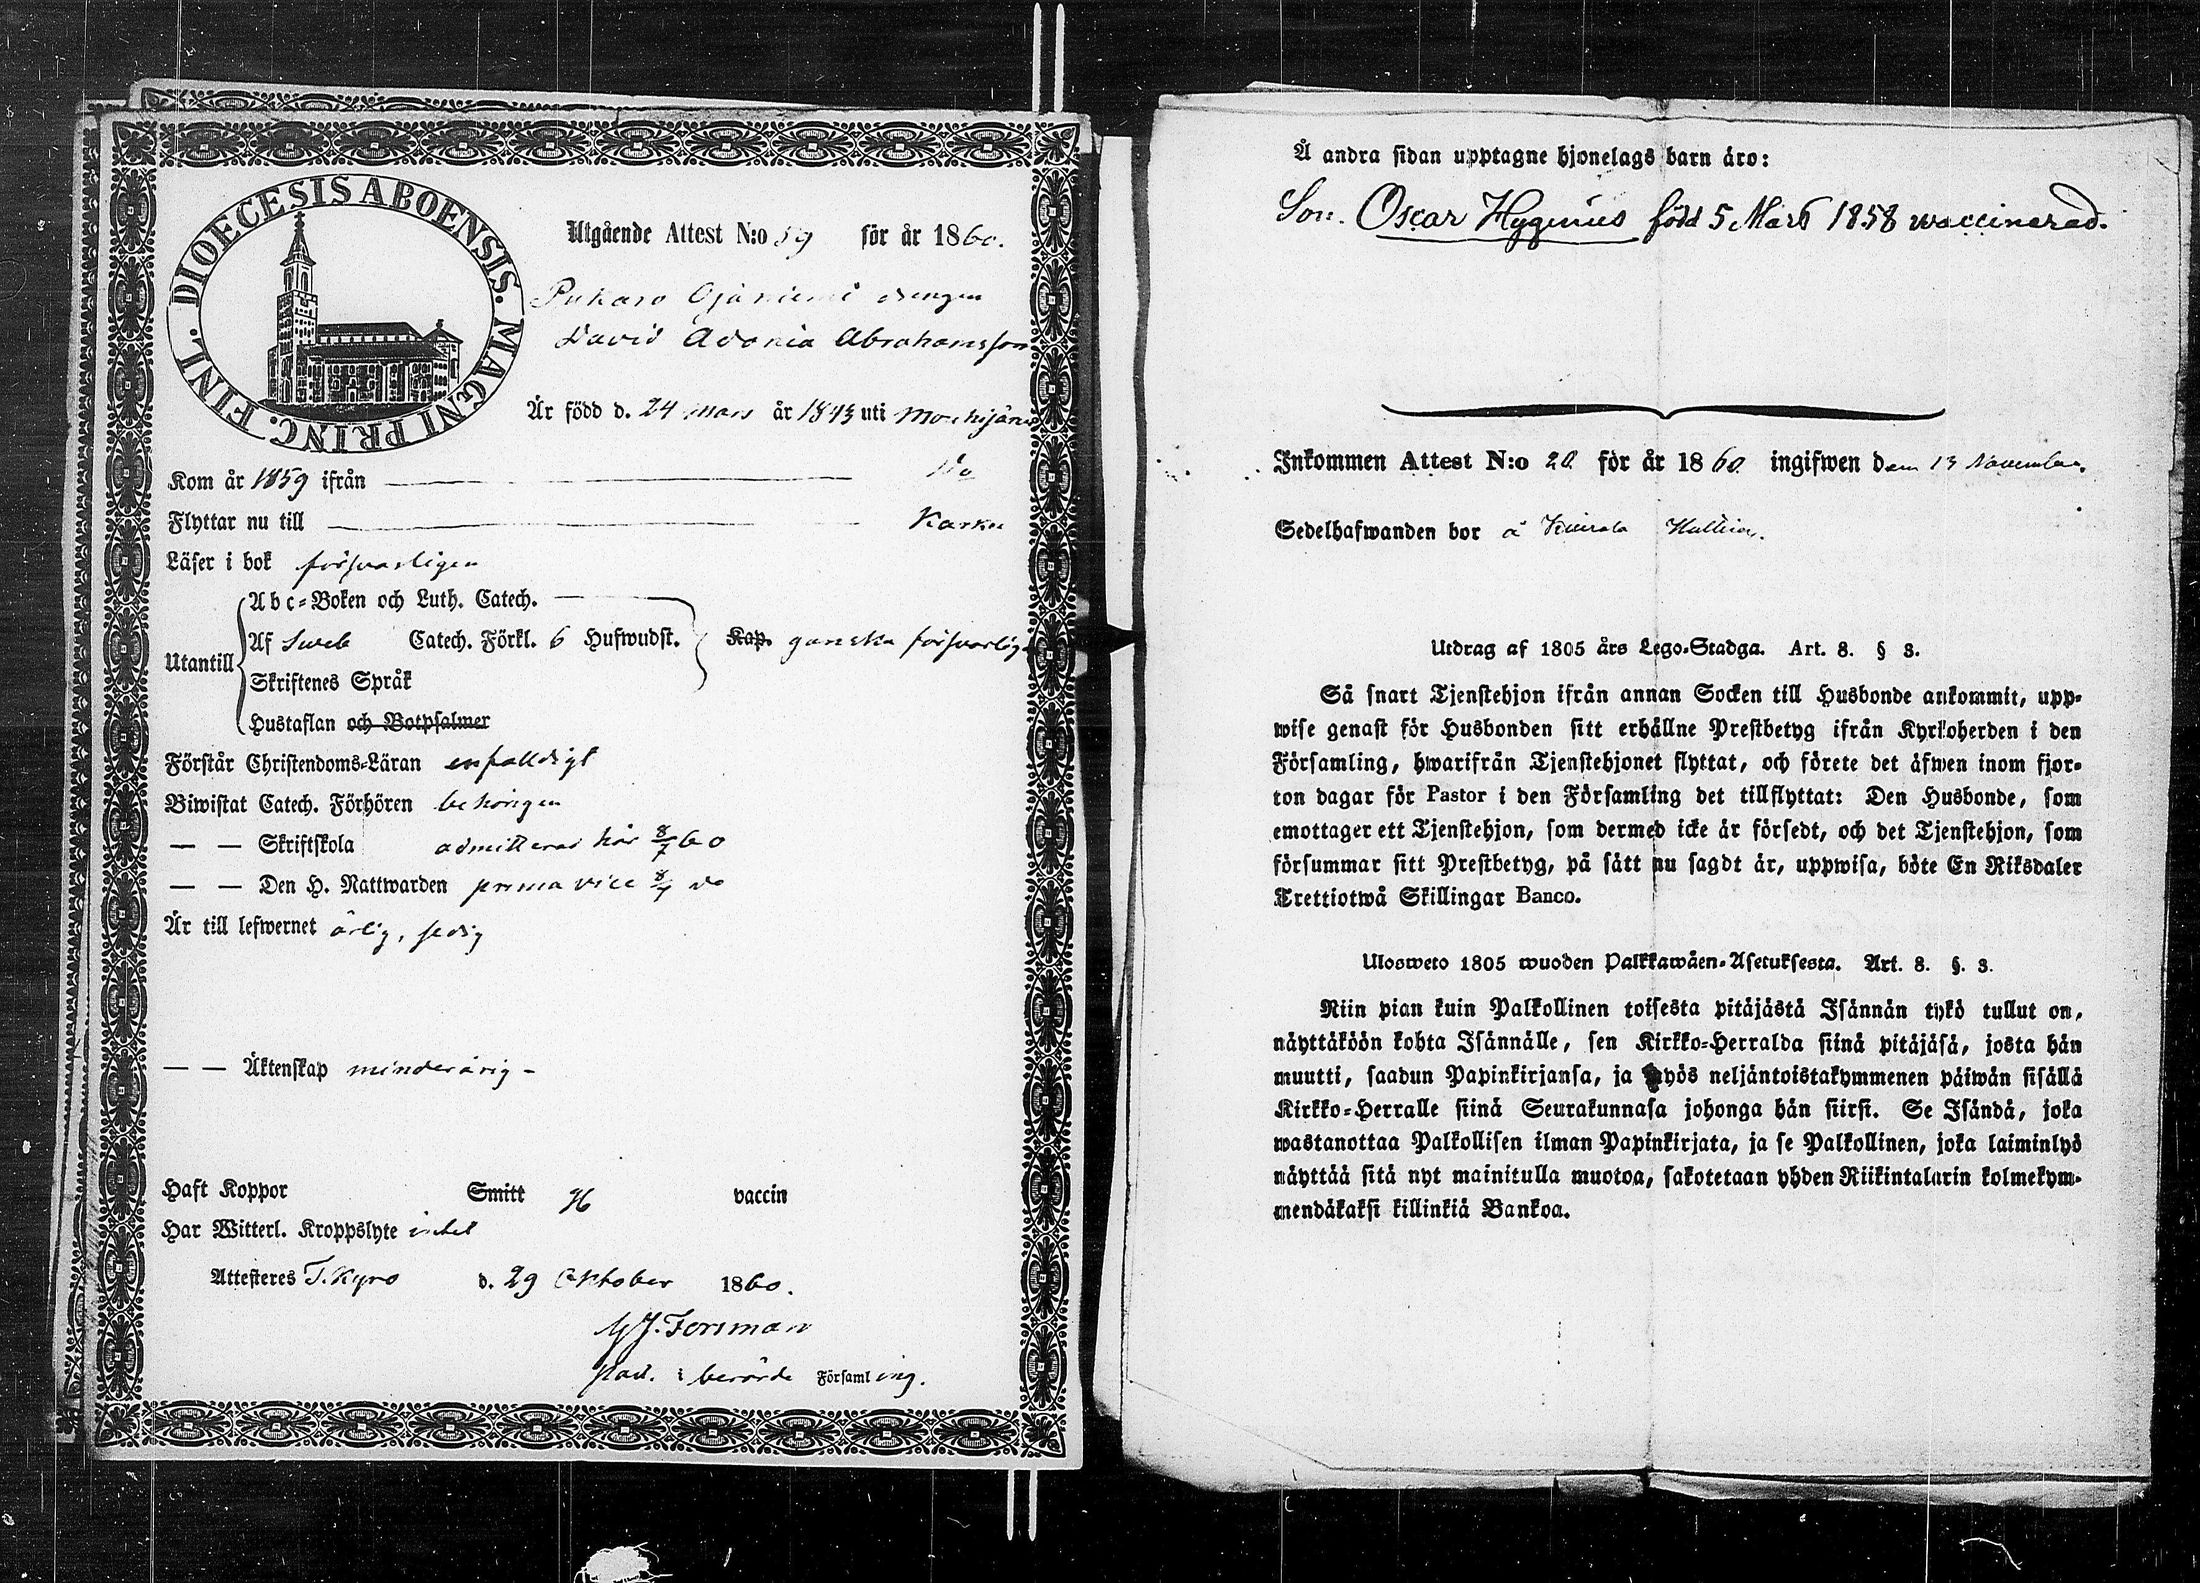 DIOECESIS ABOENSIS. MAGNI PRINC. FINL.
Utgående Attest N:o 59 för år 1860.
Ojaniemi drengen
David Adonia Abrahamsson
Är född d. 24 Mars år 1843 uti Mouhijärvi
Kom år 1859 ifrån Do
Flyttar nu till Karku
Läser i bok försvarligen
Utantill
Abc-Boken och Luth. Catech.
Af Sveb Catech. Förkl. 6 Hufwudst. Kap. ganska försvarlig
Skriftenes Språk
Hustaflan och Botpsalmer
Förstår Christendoms-Läran enfaldigt
Biwistat Catech. Förhören behörigen
— — Skriftskola admitterad här 8/7 60
— — Den H. Nattwarden prima vice do
Är till lefwernet ärlig, sedig
— — Äktenskap minderårig -
Haft Koppor Smitt vaccin
Har Witterl. Kroppslyte intet
Attesteres T. Kyro d. 29 Oktober 1860.
Forsman
i berörde Församling.
Å andra sidan upptagne hjonelags barn äro:
Son. Oscar Hyginus född 5 Mars 1858 vaccinerad.
Inkommen Attest N:o 20 för år 1860 ingifwen den 13 November.
Sedelhafwanden bor å
Utdrag af 1805 års Lego-Stadga. Art. 8. § 3.
Så snart Tjenstehjon ifrån annan Socken till Husbonde ankommit, upp-
wise genast för Husbonden sitt erhållne Prestbetyg ifrån Kyrkoherden i den
Församling, hwarifrån Tjenstehjonet flyttat, och förete det äfwen inom fjor-
ton dagar för Pastor i den Församling det tillflyttat: Den Husbonde, som
emottager ett Tjenstehjon, som dermed icke är försedt, och det Tjenstehjon, som
försummar sitt Prestbetyg, på sätt nu sagdt är, uppwisa, böte En Riksdaler
Trettiotwå Skillingar Banco.
Ulosweto 1805 wuoden Palkkawäen-Asetuksesta. Art. 8. §. 3.
Niin pian kuin Palkollinen toisesta pitäjästä Isännän tykö tullut on,
näyttäköön kohta Isännälle, sen Kirkko-Herralda siinä pitäjäsä, josta hän
muutti, saadun Papinkirjansa, ja myös neljäntoistakymmenen päiwän sisällä
Kirkko-Herralle siinä Seurakunnasa johonga hän siirsi. Se Isändä, joka
wastanottaa Palkollisen ilman Papinkirjata, ja se Palkollinen, joka laiminlyö
näyttää sitä nyt mainitulla muotoa, sakotetaan yhden Riikintalarin kolmekym-
mendäkaksi killinkiä Bankoa.